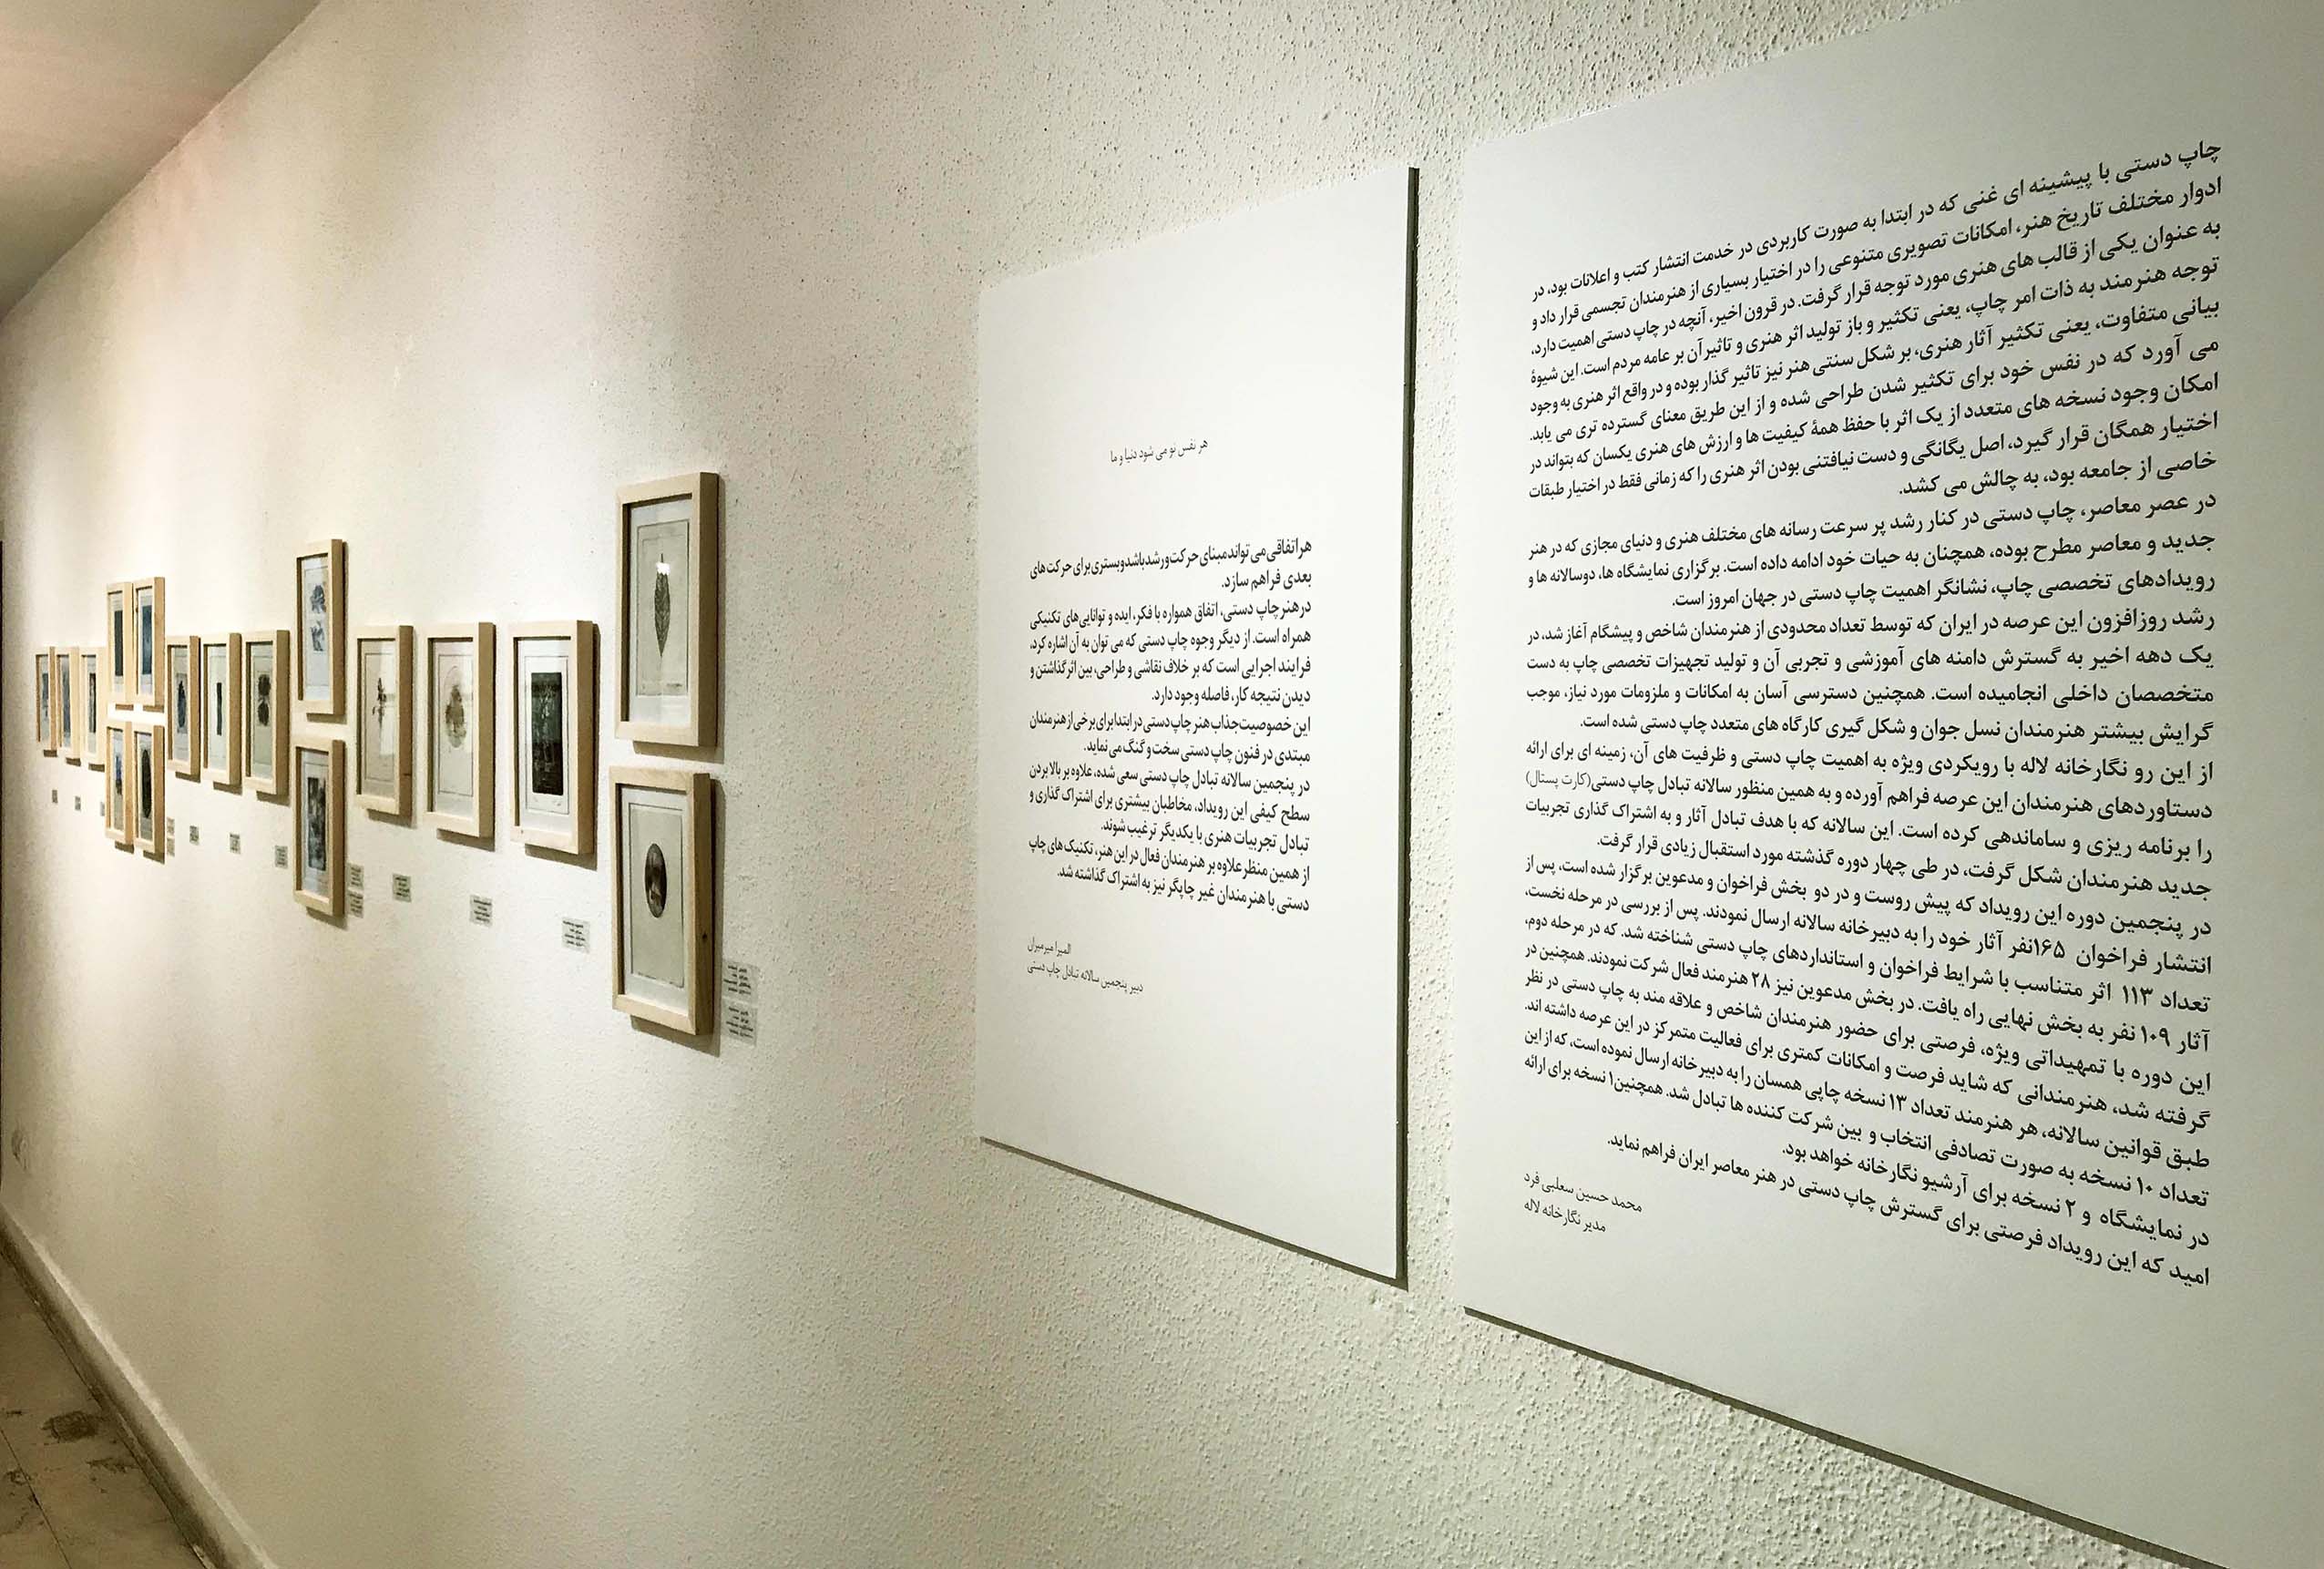 چاپ دستی با پیشینه ای غنی که در ابتدا به صورت کاربردی در خدمت انتشار کتب و اعلانات بود، در
ادوار مختلف تاریخ هنر، امکانات تصویری متنوعی را در اختیار بسیاری از هنرمندان تجسمی قرار داد و
به عنوان یکی از قالب های هنری مورد توجه قرار گرفت. در قرون اخیر، آنچه در چاپ دستی اهمیت دارد،
توجه هنرمند به ذات امر چاپ، یعنی تکثیر و باز تولید اثر هنری و تاثیر آن بر عامه مردم است. این شیوهٔ
بیانی متفاوت، یعنی تکثیر آثار هنری، بر شکل سنتی هنر نیز تاثیر گذار بوده و در واقع اثر هنری به وجود
می آورد که در نفس خود برای تکثیر شدن طراحی شده و از این طریق معنای گسترده تری می یابد.
امکان وجود نسخه های متعدد از یک اثر با حفظ همهٔ کیفیت ها و ارزش های هنری یکسان که بتواند در
اختیار همگان قرار گیرد، اصل یگانگی و دست نیافتنی بودن اثر هنری را که زمانی فقط در اختیار طبقات
خاصی از جامعه بود، به چالش می کشد.
در عصر معاصر، چاپ دستی در کنار رشد پر سرعت رسانه های مختلف هنری و دنیای مجازی که در هنر
جدید و معاصر مطرح بوده، همچنان به حیات خود ادامه داده است. برگزاری نمایشگاه ها، دوسالانه ها و
رویدادهای تخصصی چاپ، نشانگر اهمیت چاپ دستی در جهان امروز است.
رشد روزافزون این عرصه در ایران که توسط تعداد محدودی از هنرمندان شاخص و پیشگام آغاز شد، در
یک دهه اخیر به گسترش دامنه های آموزشی و تجربی آن و تولید تجهیزات تخصصی چاپ به دست
متخصصان داخلی انجامیده است. همچنین دسترسی آسان به امکانات و ملزومات مورد نیاز، موجب
گرایش بیشتر هنرمندان نسل جوان و شکل گیری کارگاه های متعدد چاپ دستی شده است.
از این رو نگارخانه لاله با رویکردی ویژه به اهمیت چاپ دستی و ظرفیت های آن، زمینه ای برای ارائه
دستاوردهای هنرمندان این عرصه فراهم آورده و به همین منظور سالانه تبادل چاپ دستی(کارت پستال)
را برنامه ریزی و ساماندهی کرده است. این سالانه که با هدف تبادل آثار و به اشتراک گذاری تجربیات
جدید هنرمندان شکل گرفت، در طی چهار دوره گذشته مورد استقبال زیادی قرار گرفت.
در پنجمین دوره این رویداد که پیش روست و در دو بخش فراخوان و مدعوین برگزار شده است، پس از
انتشار فراخوان ۱۶۵نفر آثار خود را به دبیرخانه سالانه ارسال نمودند. پس از بررسی در مرحله نخست،
تعداد ۱۱۳ اثر متناسب با شرایط فراخوان و استانداردهای چاپ دستی شناخته شد. که در مرحله دوم،
آثار ۱۰۹ نفر به بخش نهایی راه یافت. در بخش مدعوین نیز ۲۸ هنرمند فعال شرکت نمودند. همچنین در
این دوره با تمهیداتی ویژه، فرصتی برای حضور هنرمندان شاخص و علاقه مند به چاپ دستی در نظر
گرفته شد، هنرمندانی که شاید فرصت و امکانات کمتری برای فعالیت متمرکز در این عرصه داشته اند.
طبق قوانین سالانه، هر هنرمند تعداد ۱۳ نسخه چاپی همسان را به دبیرخانه ارسال نموده است، که از این
تعداد ۱۰ نسخه به صورت تصادفی انتخاب و بین شرکت کننده ها تبادل شد. همچنین۱ نسخه برای ارائه
در نمایشگاه و ۲ نسخه برای آرشیو نگارخانه خواهد بود.
امید که این رویداد فرصتی برای گسترش چاپ دستی در هنر معاصر ایران فراهم نماید.
محمد حسین سعلبی فرد
مدیر نگارخانه لاله
هر نفس نو می شود دنیا و ما
هر اتفاقی می تواند مبنای حرکت و رشد باشد و بستری برای حرکت های
بعدی فراهم سازد.
در هنر چاپ دستی، اتفاق همواره با فکر، ایده و توانایی های تکنیکی
همراه است. از دیگر وجوه چاپ دستی که می توان به آن اشاره کرد،
فرایند اجرایی است که بر خلاف نقاشی و طراحی، بین اثر گذاشتن و
دیدن نتیجه کار، فاصله وجود دارد.
این خصوصیت جذاب هنر چاپ دستی در ابتدا برای برخی از هنرمندان
مبتدی در فنون چاپ دستی سخت و گنگ می نماید.
در پنجمین سالانه تبادل چاپ دستی سعی شده، علاوه بر بالا بردن
سطح کیفی این رویداد، مخاطبان بیشتری برای اشتراک گذاری و
تبادل تجربیات هنری با یکدیگر ترغیب شوند.
از همین منظر علاوه بر هنرمندان فعال در این هنر، تکنیک های چاپ
دستی با هنرمندان غیر چاپگر نیز به اشتراک گذاشته شد.
المیرا میرمیران
دبیر پنجمین سالانه تبادل چاپ دستی